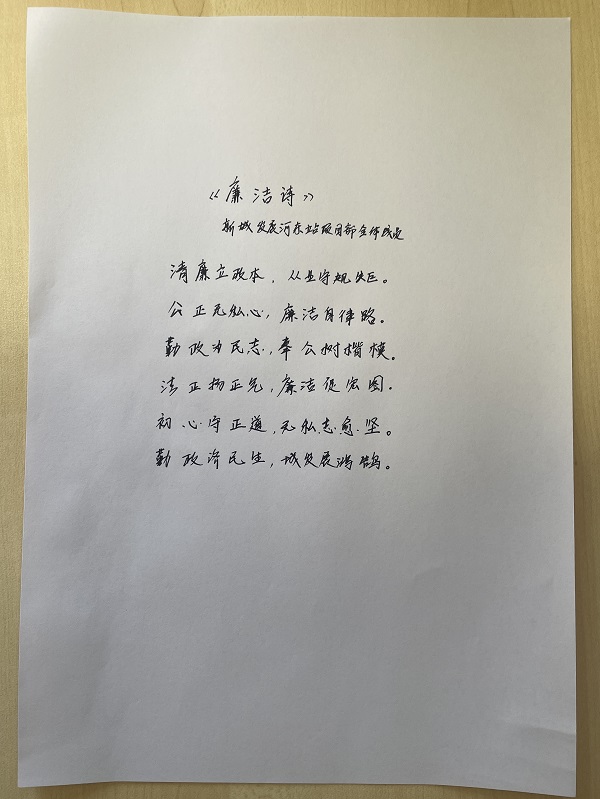 《廉洁诗》
新城发展河东站项目部全体成员
清廉立政本，从业守规矩。
公正无私心，廉洁自律路。
勤政为民志，奉公树楷模。
清正扬正气，廉洁绽宏图。
初心守正道，无私志愈坚。
勤政济民生，城发展鸿鹄。